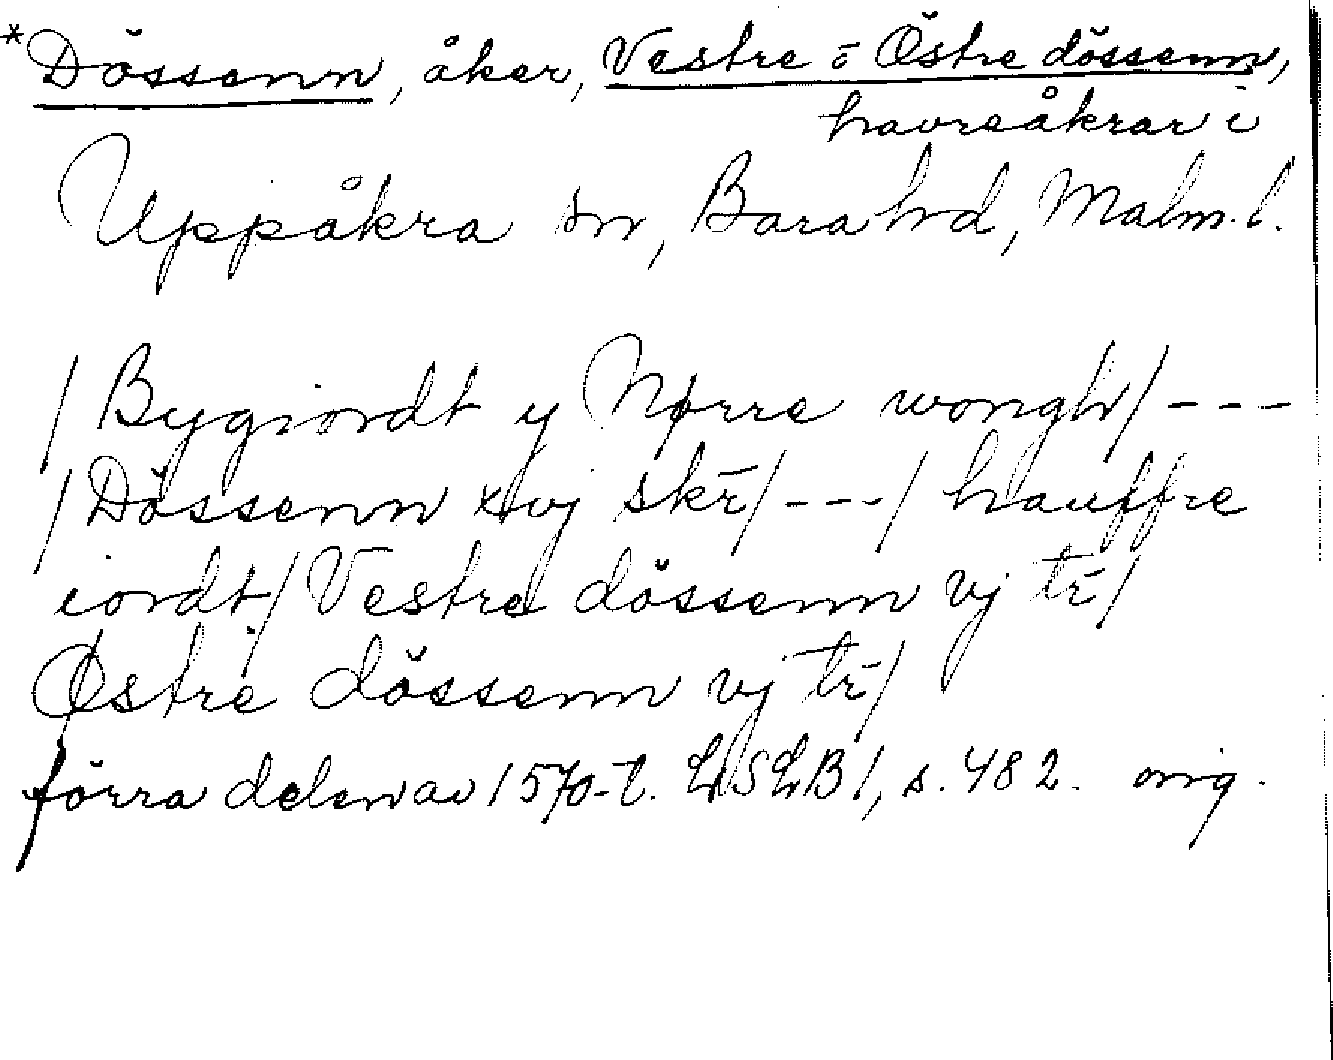 *Dössenn, åker, Vestre o Östre dössenn,
havreåkrar i
Uppåkra sn, Bara hd, Malm. l.
/Bygiordt y Nørre wongh/ ---
/Dössenn xvj skr̄/ ---/ hauffre
iordt/ Vestre dössenn vj tr̄/
Østre dössenn vj tr̄/
förra delen av 1570-t. LSLB 1, s. 482. orig.